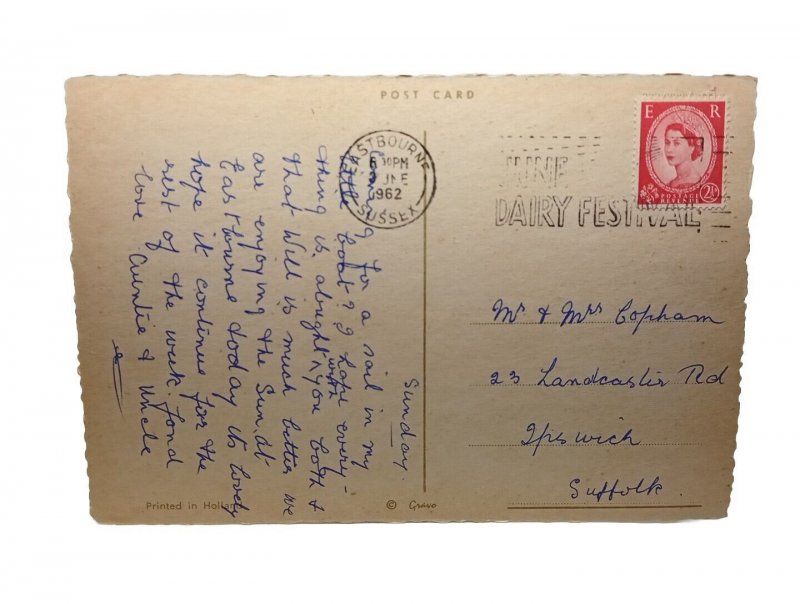 POST CARD
EASTBOURNE
6 30PM
JNE
1962
SUSSEX
JUNE
DAIRY FESTIVAL
E R
2½D
POSTAGE
REVENUE
Sunday.
for a sail in my
little boat? I hope every-
thing is alright with you both &
that Will is much better we
are enjoying the Sun at
Eastbourne today its lovely
hope it continues for the
rest of the week. Fond
love Auntie & Uncle
Mr & Mrs Copham
23 Landcaster Rd
Ipswich
Suffolk.
Printed in Holland
© Gravo